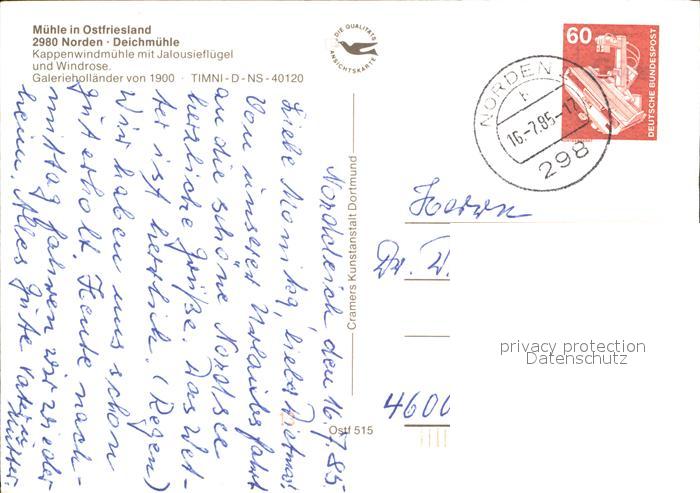 Mühle in Ostfriesland
2980 Norden · Deichmühle
Kappenwindmühle mit Jalousieflügel
und Windrose.
Galerieholländer von 1900 · TIMNI - D - NS - 40120
DIE QUALITÄTS
ANSICHTSKARTE
60
DEUTSCHE BUNDESPOST
NORDEN 1
16.-7.85-17
298
Norddeich den 16.7.85.
Liebe Monika, lieber Dietmar!
Von unserer Urlaubsfahrt
an die schöne Nordsee
herzliche Grüße. Das Wet-
ter ist herrlich. (Regen)
Wir haben uns schon
gut erholt. Heute nach-
mittag fahren wir wieder
heim. Alles Gute Vater u.
Mutter.
Cramers Kunstanstalt Dortmund
Ostf 515
Herrn
Dr. D.
4600
privacy protection
Datenschutz